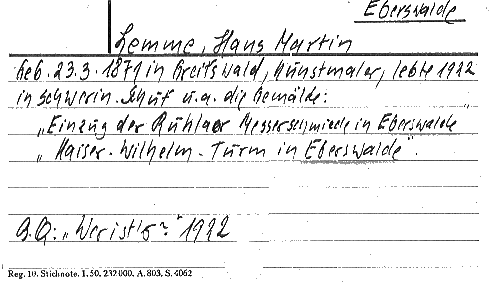 Eberswalde
Lemme, Hans Martin
Geb. 23.3.1871 in Greifswald, Kunstmaler, lebte 1922
in Schwerin. Schuf u.a. die Gemälde:
„Einzug der Ruhlaer Messerschmiede in Eberswalde"
„Kaiser-Wilhelm-Turm in Eberswalde".
B.Q.: „Wer ist's?" 1922
Reg. 10. Stichnote. 1. 50. 232000. A. 803. S. 4062